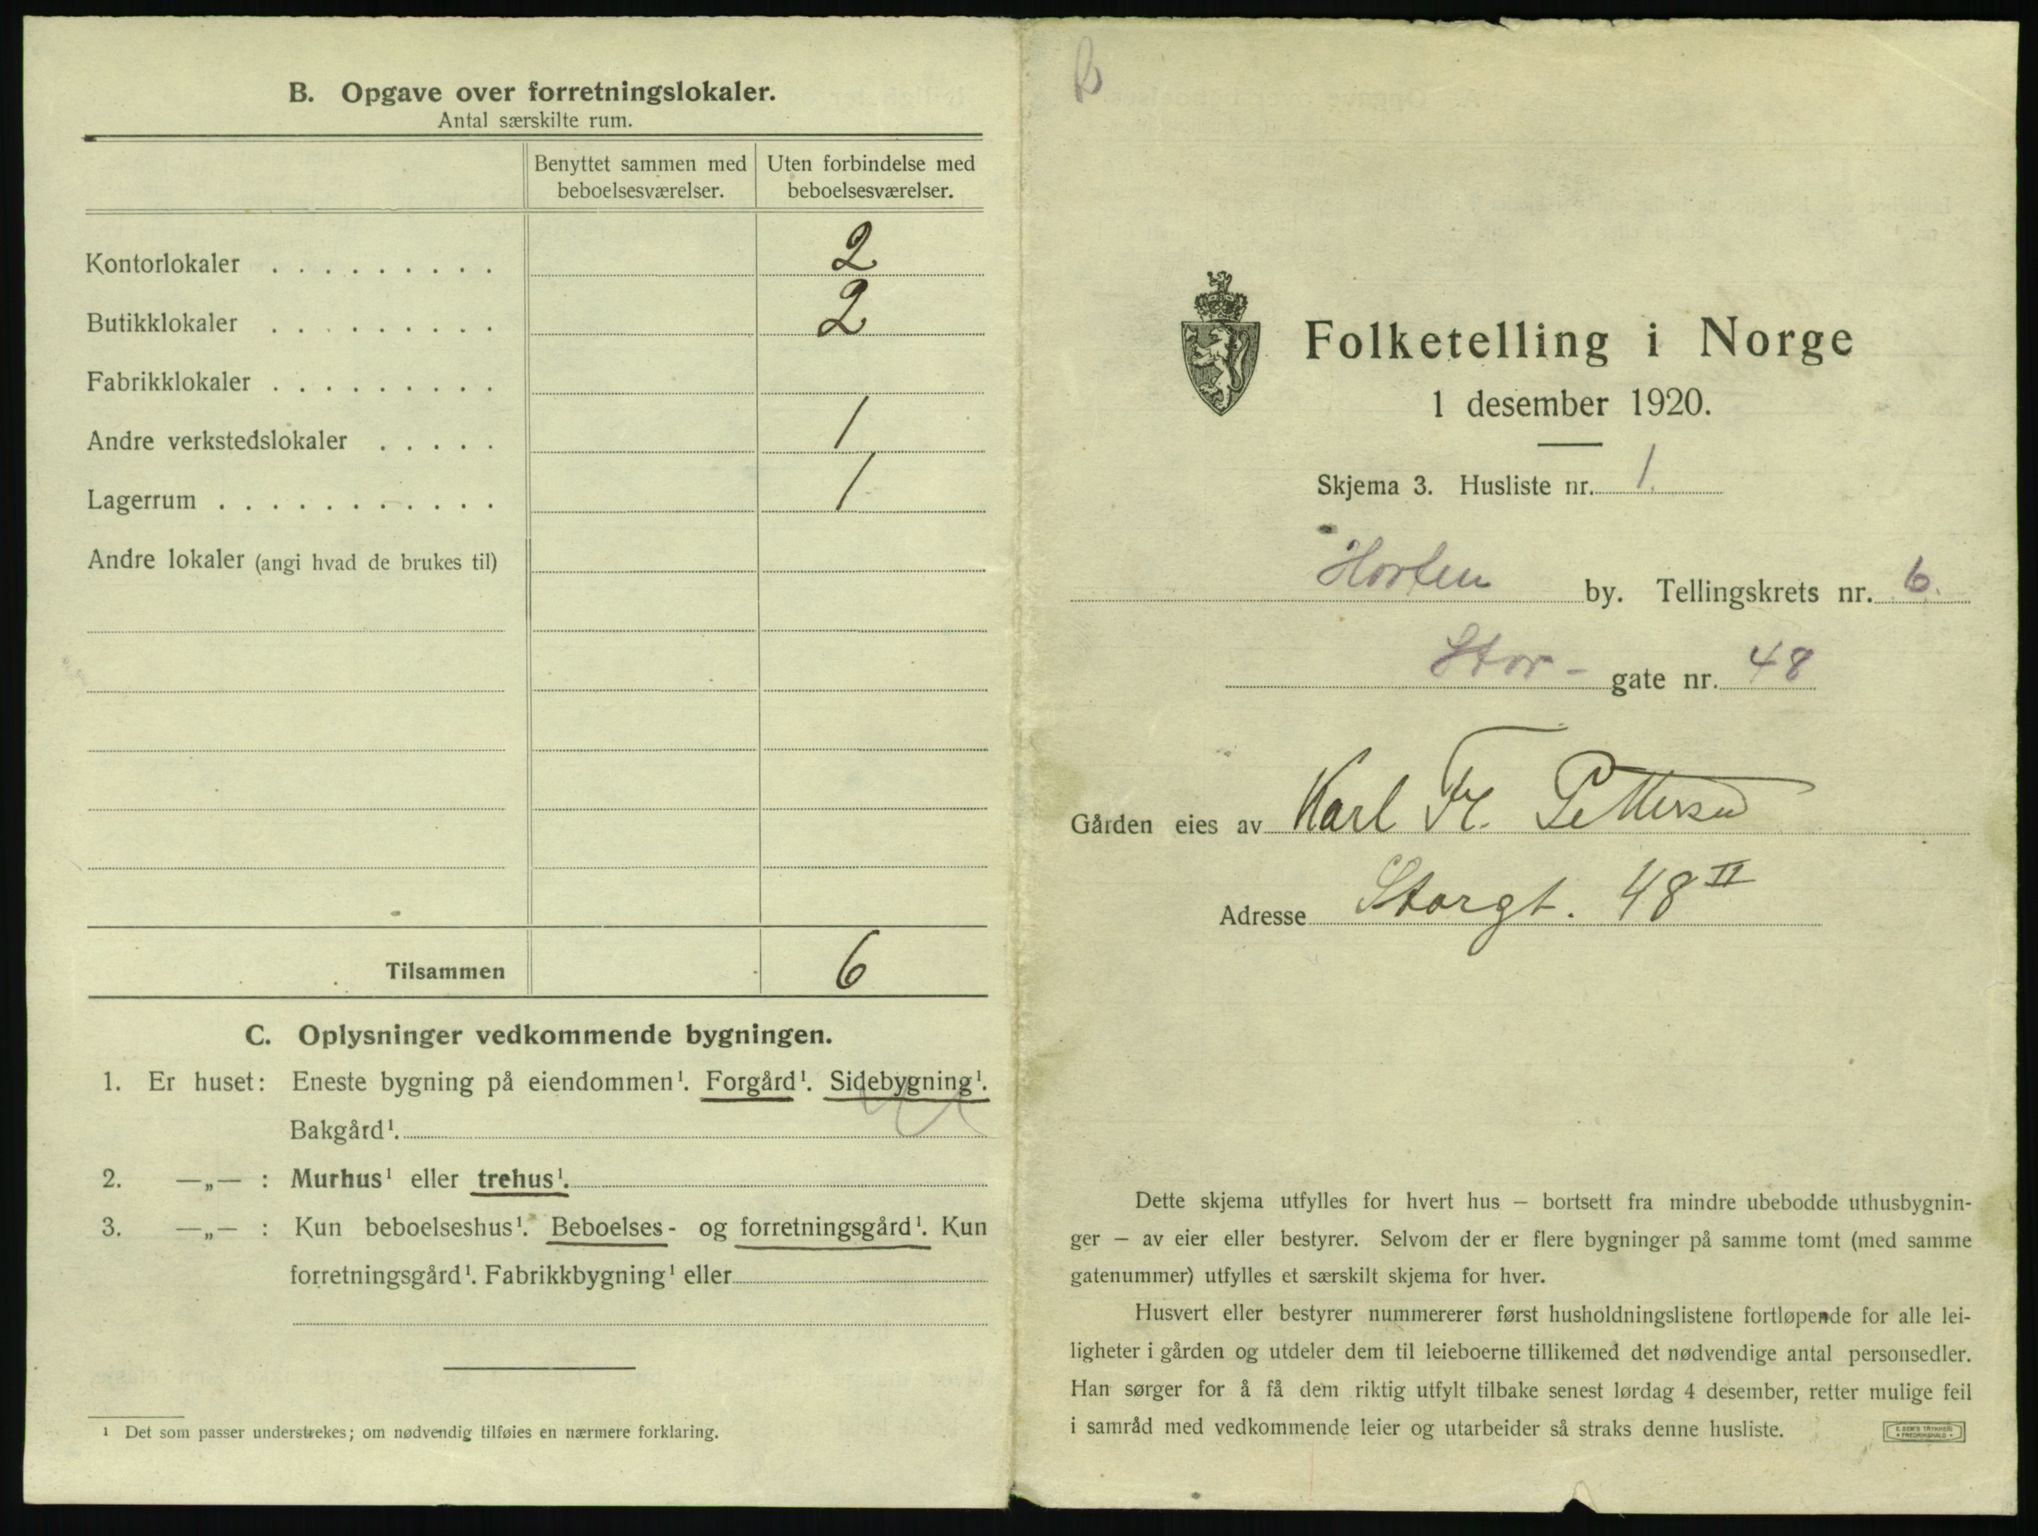 B. Opgave over forretningslokaler.
Antal særskilte rum.
Benyttet sammen med beboelsesværelser.
Uten forbindelse med beboelsesværelser.
Kontorlokaler . . . . . . . . . 2
Butikklokaler . . . . . . . . . 2
Fabrikklokaler . . . . . . . . .
Andre verkstedslokaler . . . . . 1
Lagerrum . . . . . . . . . . . 1
Andre lokaler (angi hvad de brukes til)
Tilsammen 6
C. Oplysninger vedkommende bygningen.
1. Er huset: Eneste bygning på eiendommen¹. Forgård¹. Sidebygning¹.
Bakgård¹.
2. —„— : Murhus¹ eller trehus¹.
3. —„— : Kun beboelseshus¹. Beboelses- og forretningsgård¹. Kun
forretningsgård¹. Fabrikkbygning¹ eller
¹ Det som passer understrekes; om nødvendig tilføies en nærmere forklaring.
B
Folketelling i Norge
1 desember 1920.
Skjema 3. Husliste nr. 1.
Horten by. Tellingskrets nr. 6.
Stor- gate nr. 48
Gården eies av Karl Fr. Pettersen
Adresse Storgt. 48 II
Dette skjema utfylles for hvert hus — bortsett fra mindre ubebodde uthusbygnin-
ger — av eier eller bestyrer. Selvom der er flere bygninger på samme tomt (med samme
gatenummer) utfylles et særskilt skjema for hver.
Husvert eller bestyrer nummererer først husholdningslistene fortløpende for alle lei-
ligheter i gården og utdeler dem til leieboerne tillikemed det nødvendige antal personsedler.
Han sørger for å få dem riktig utfylt tilbake senest lørdag 4 desember, retter mulige feil
i samråd med vedkommende leier og utarbeider så straks denne husliste.
E. SEM'S TRYKKERI
FREDRIKSHALD